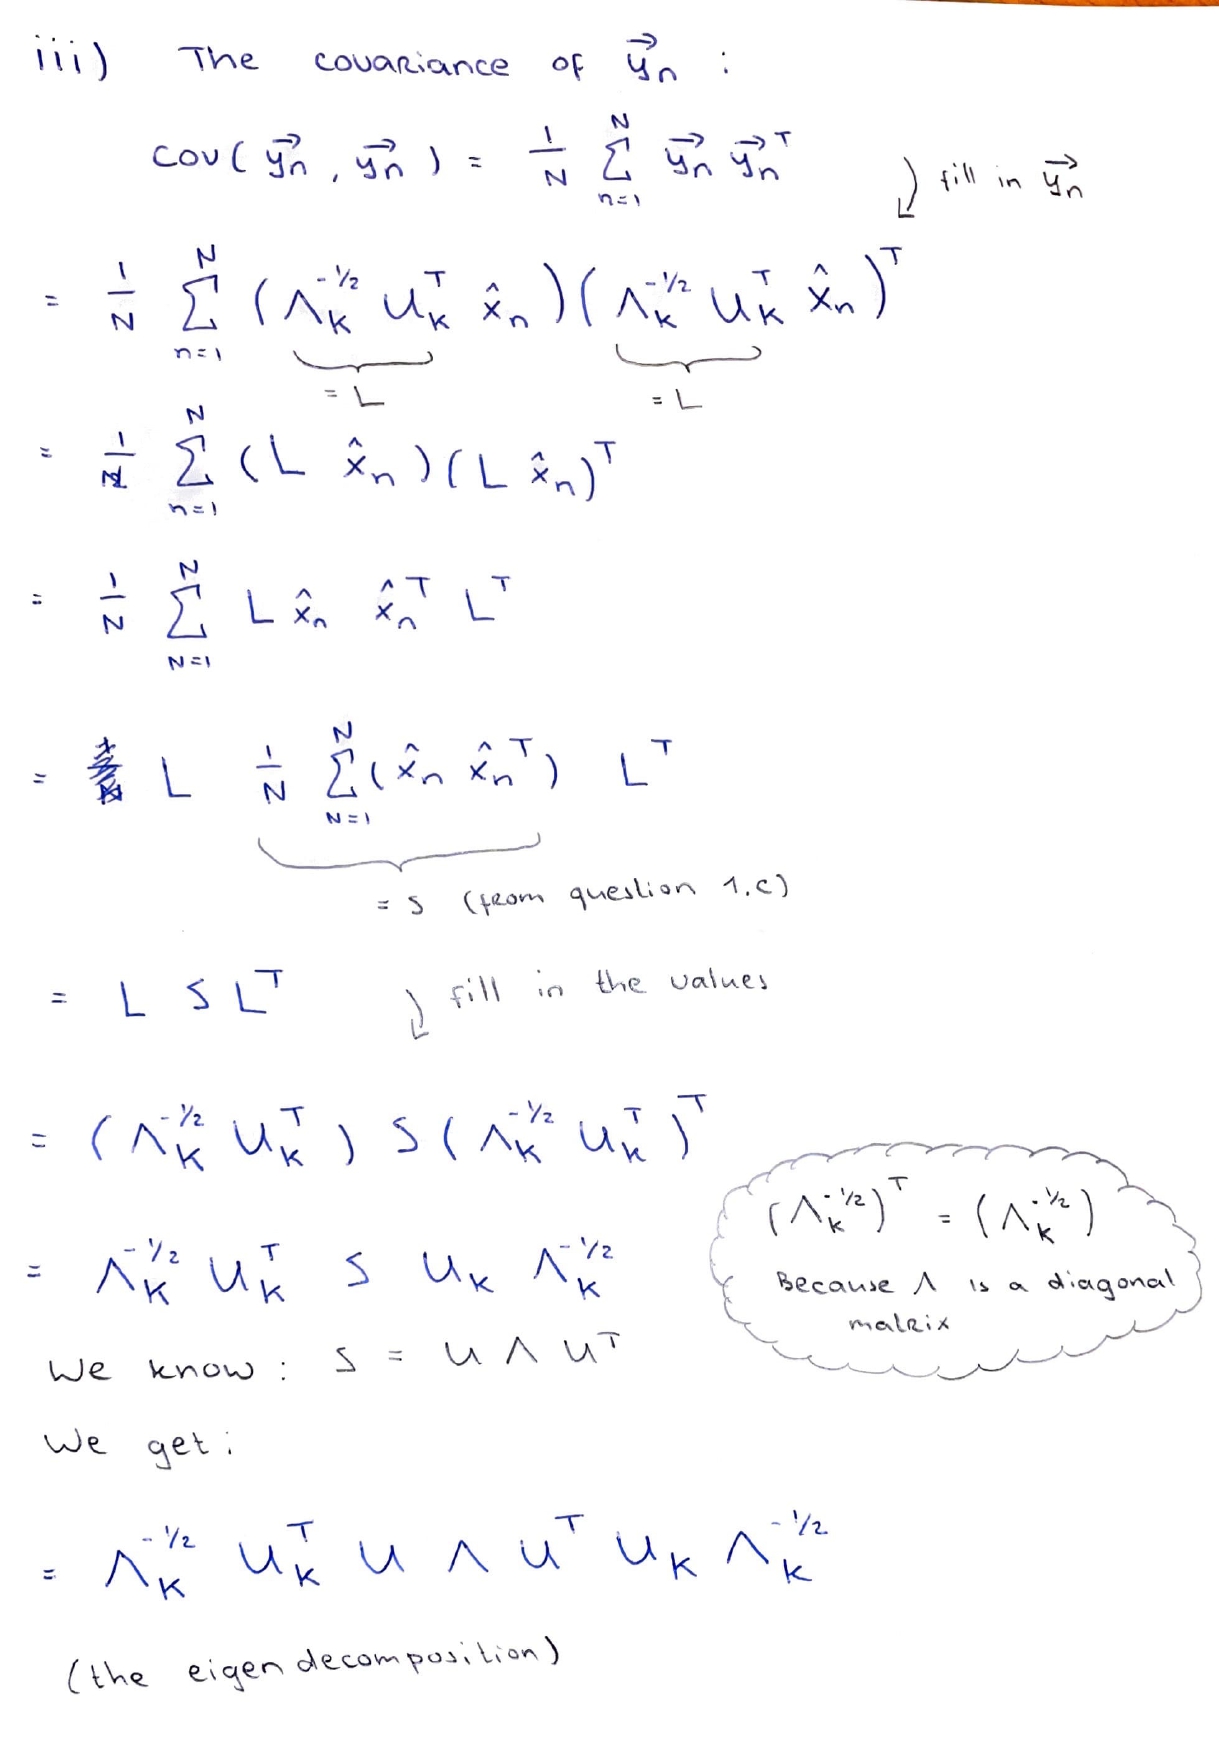 iii) The covariance of y⃗n :
cov( y⃗n , y⃗n ) = 1/N Σ_{n=1}^{N} y⃗n y⃗n^T
fill in y⃗n
= 1/N Σ_{n=1}^{N} (Λ_K^{-1/2} U_K^T x̂_n)(Λ_K^{-1/2} U_K^T x̂_n)^T
= L = L
= 1/N Σ_{n=1}^{N} (L x̂_n)(L x̂_n)^T
= 1/N Σ_{N=1}^{N} L x̂_n x̂_n^T L^T
= L 1/N Σ_{N=1}^{N} (x̂_n x̂_n^T) L^T
= S (from question 1.c)
= L S L^T
fill in the values
= (Λ_K^{-1/2} U_K^T) S (Λ_K^{-1/2} U_K^T)^T
(Λ_K^{-1/2})^T = (Λ_K^{-1/2})
Because Λ is a diagonal
matrix
= Λ_K^{-1/2} U_K^T S U_K Λ_K^{-1/2}
We know : S = U Λ U^T
We get :
= Λ_K^{-1/2} U_K^T U Λ U^T U_K Λ_K^{-1/2}
(the eigen decomposition)